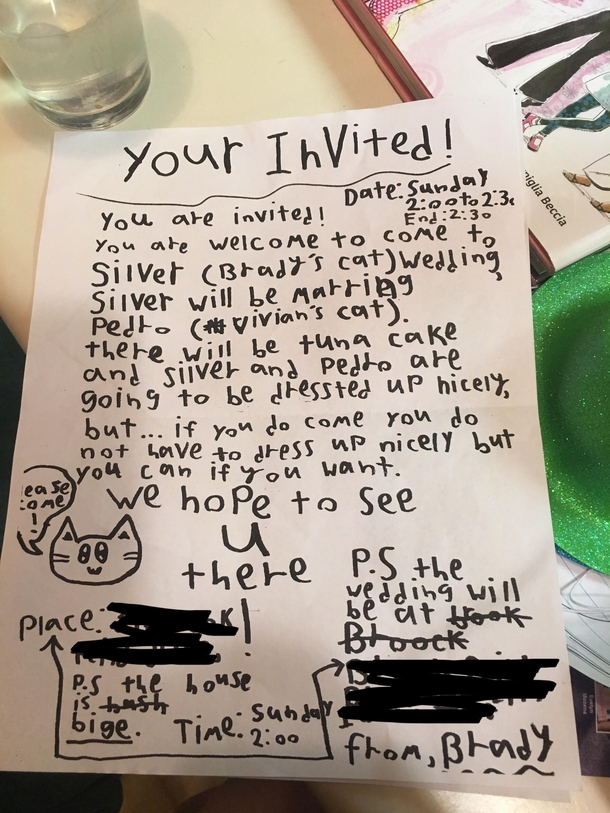 Your InVited!
Date: Sunday
2:00 to 2:3
End: 2:30
you are invited!
you are welcome to come to
Silver (Brady's cat) wedding,
Silver will be Marring
Pedro (Vivian's cat).
there will be tuna cake
and silver and Pedro are
going to be dressted up nicely,
but... if you do come you do
not have to dress up nicely but
you can if you want.
we hope to see
u
there
ease
ome
!
Place: !
P.S the house
is
bige.
Time: Sunday
2:00
P.S the
wedding will
be at book
Bloock
from, Brady
niglia Beccia